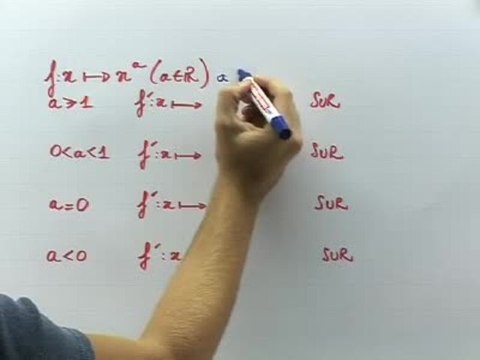 f: x ↦ x^a (a ∈ ℝ) a
a ≥ 1 f': x ↦ SUR
0 < a < 1 f': x ↦ SUR
a = 0 f': x ↦ SUR
a < 0 f': x SUR